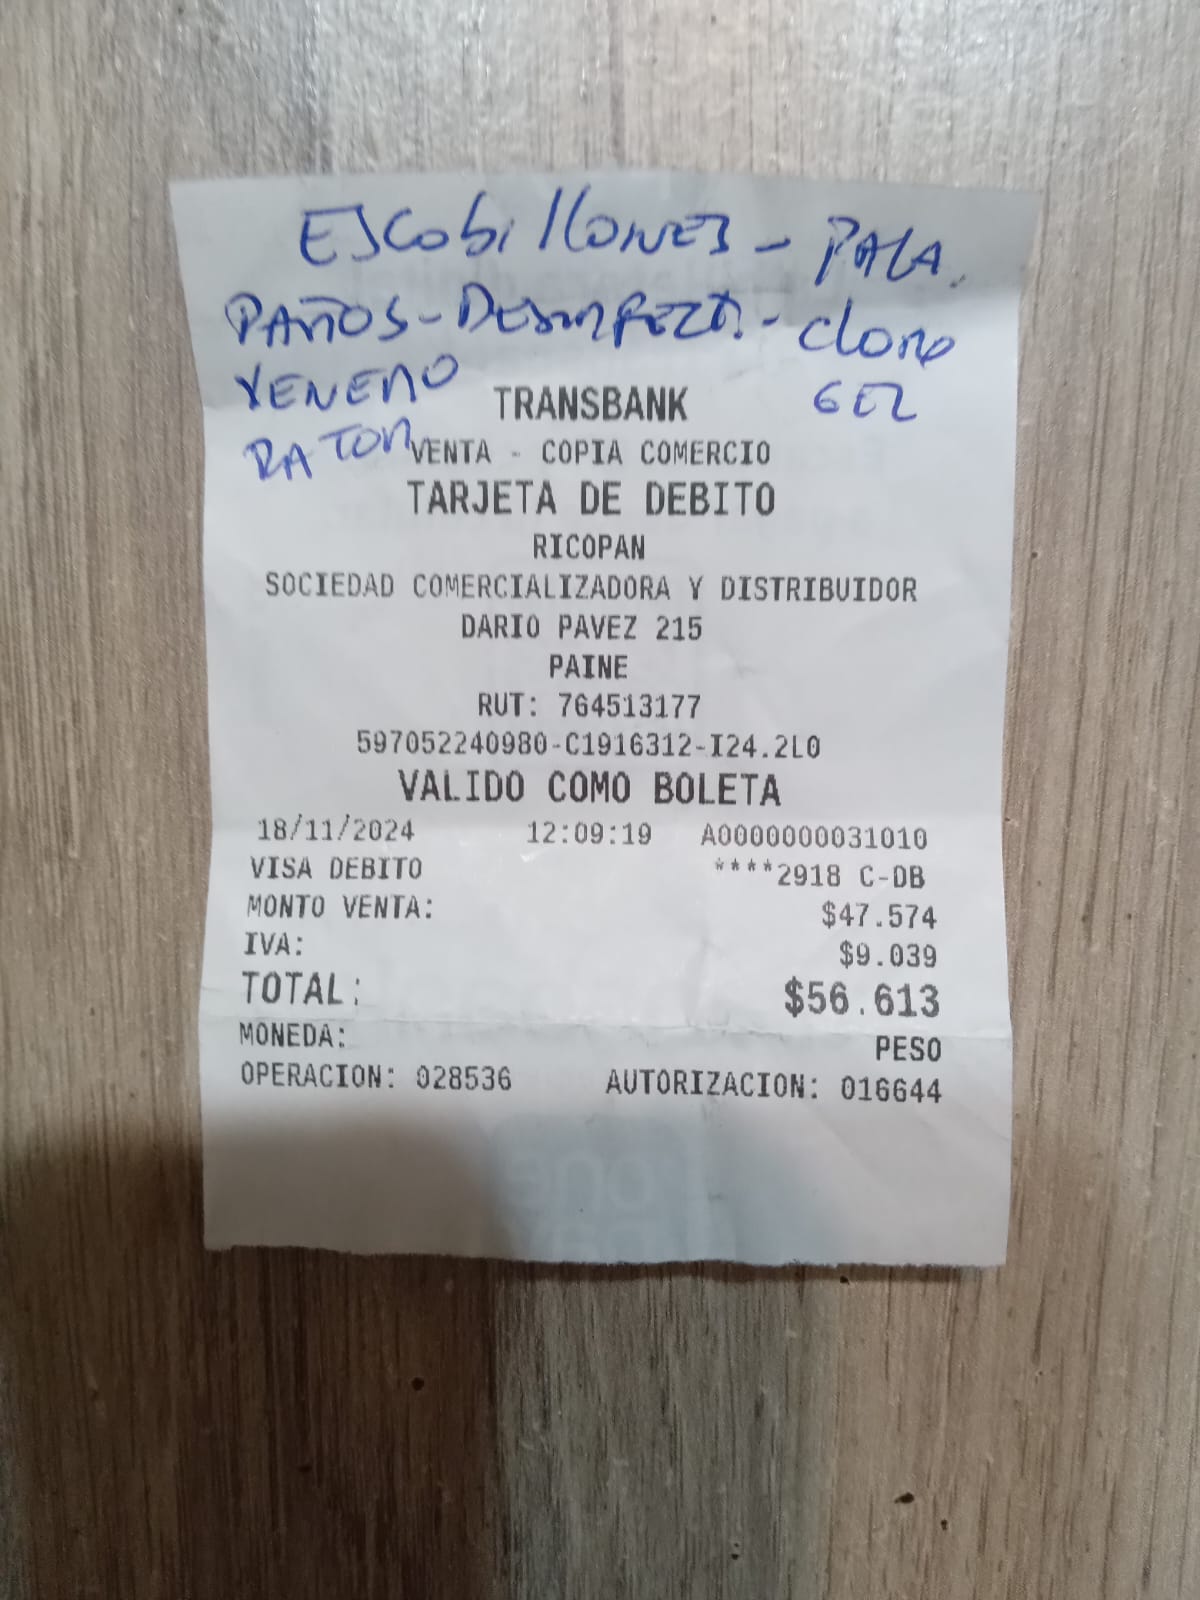 ESCobillONES - PALA.
PAÑOS - DESINFECTA. - Cloro
VENENO GEL
RATON
TRANSBANK
VENTA - COPIA COMERCIO
TARJETA DE DEBITO
RICOPAN
SOCIEDAD COMERCIALIZADORA Y DISTRIBUIDOR
DARIO PAVEZ 215
PAINE
RUT: 764513177
597052240980-C1916312-I24.2L0
VALIDO COMO BOLETA
18/11/2024 12:09:19 A0000000031010
VISA DEBITO ****2918 C-DB
MONTO VENTA: $47.574
IVA: $9.039
TOTAL: $56.613
MONEDA: PESO
OPERACION: 028536 AUTORIZACION: 016644